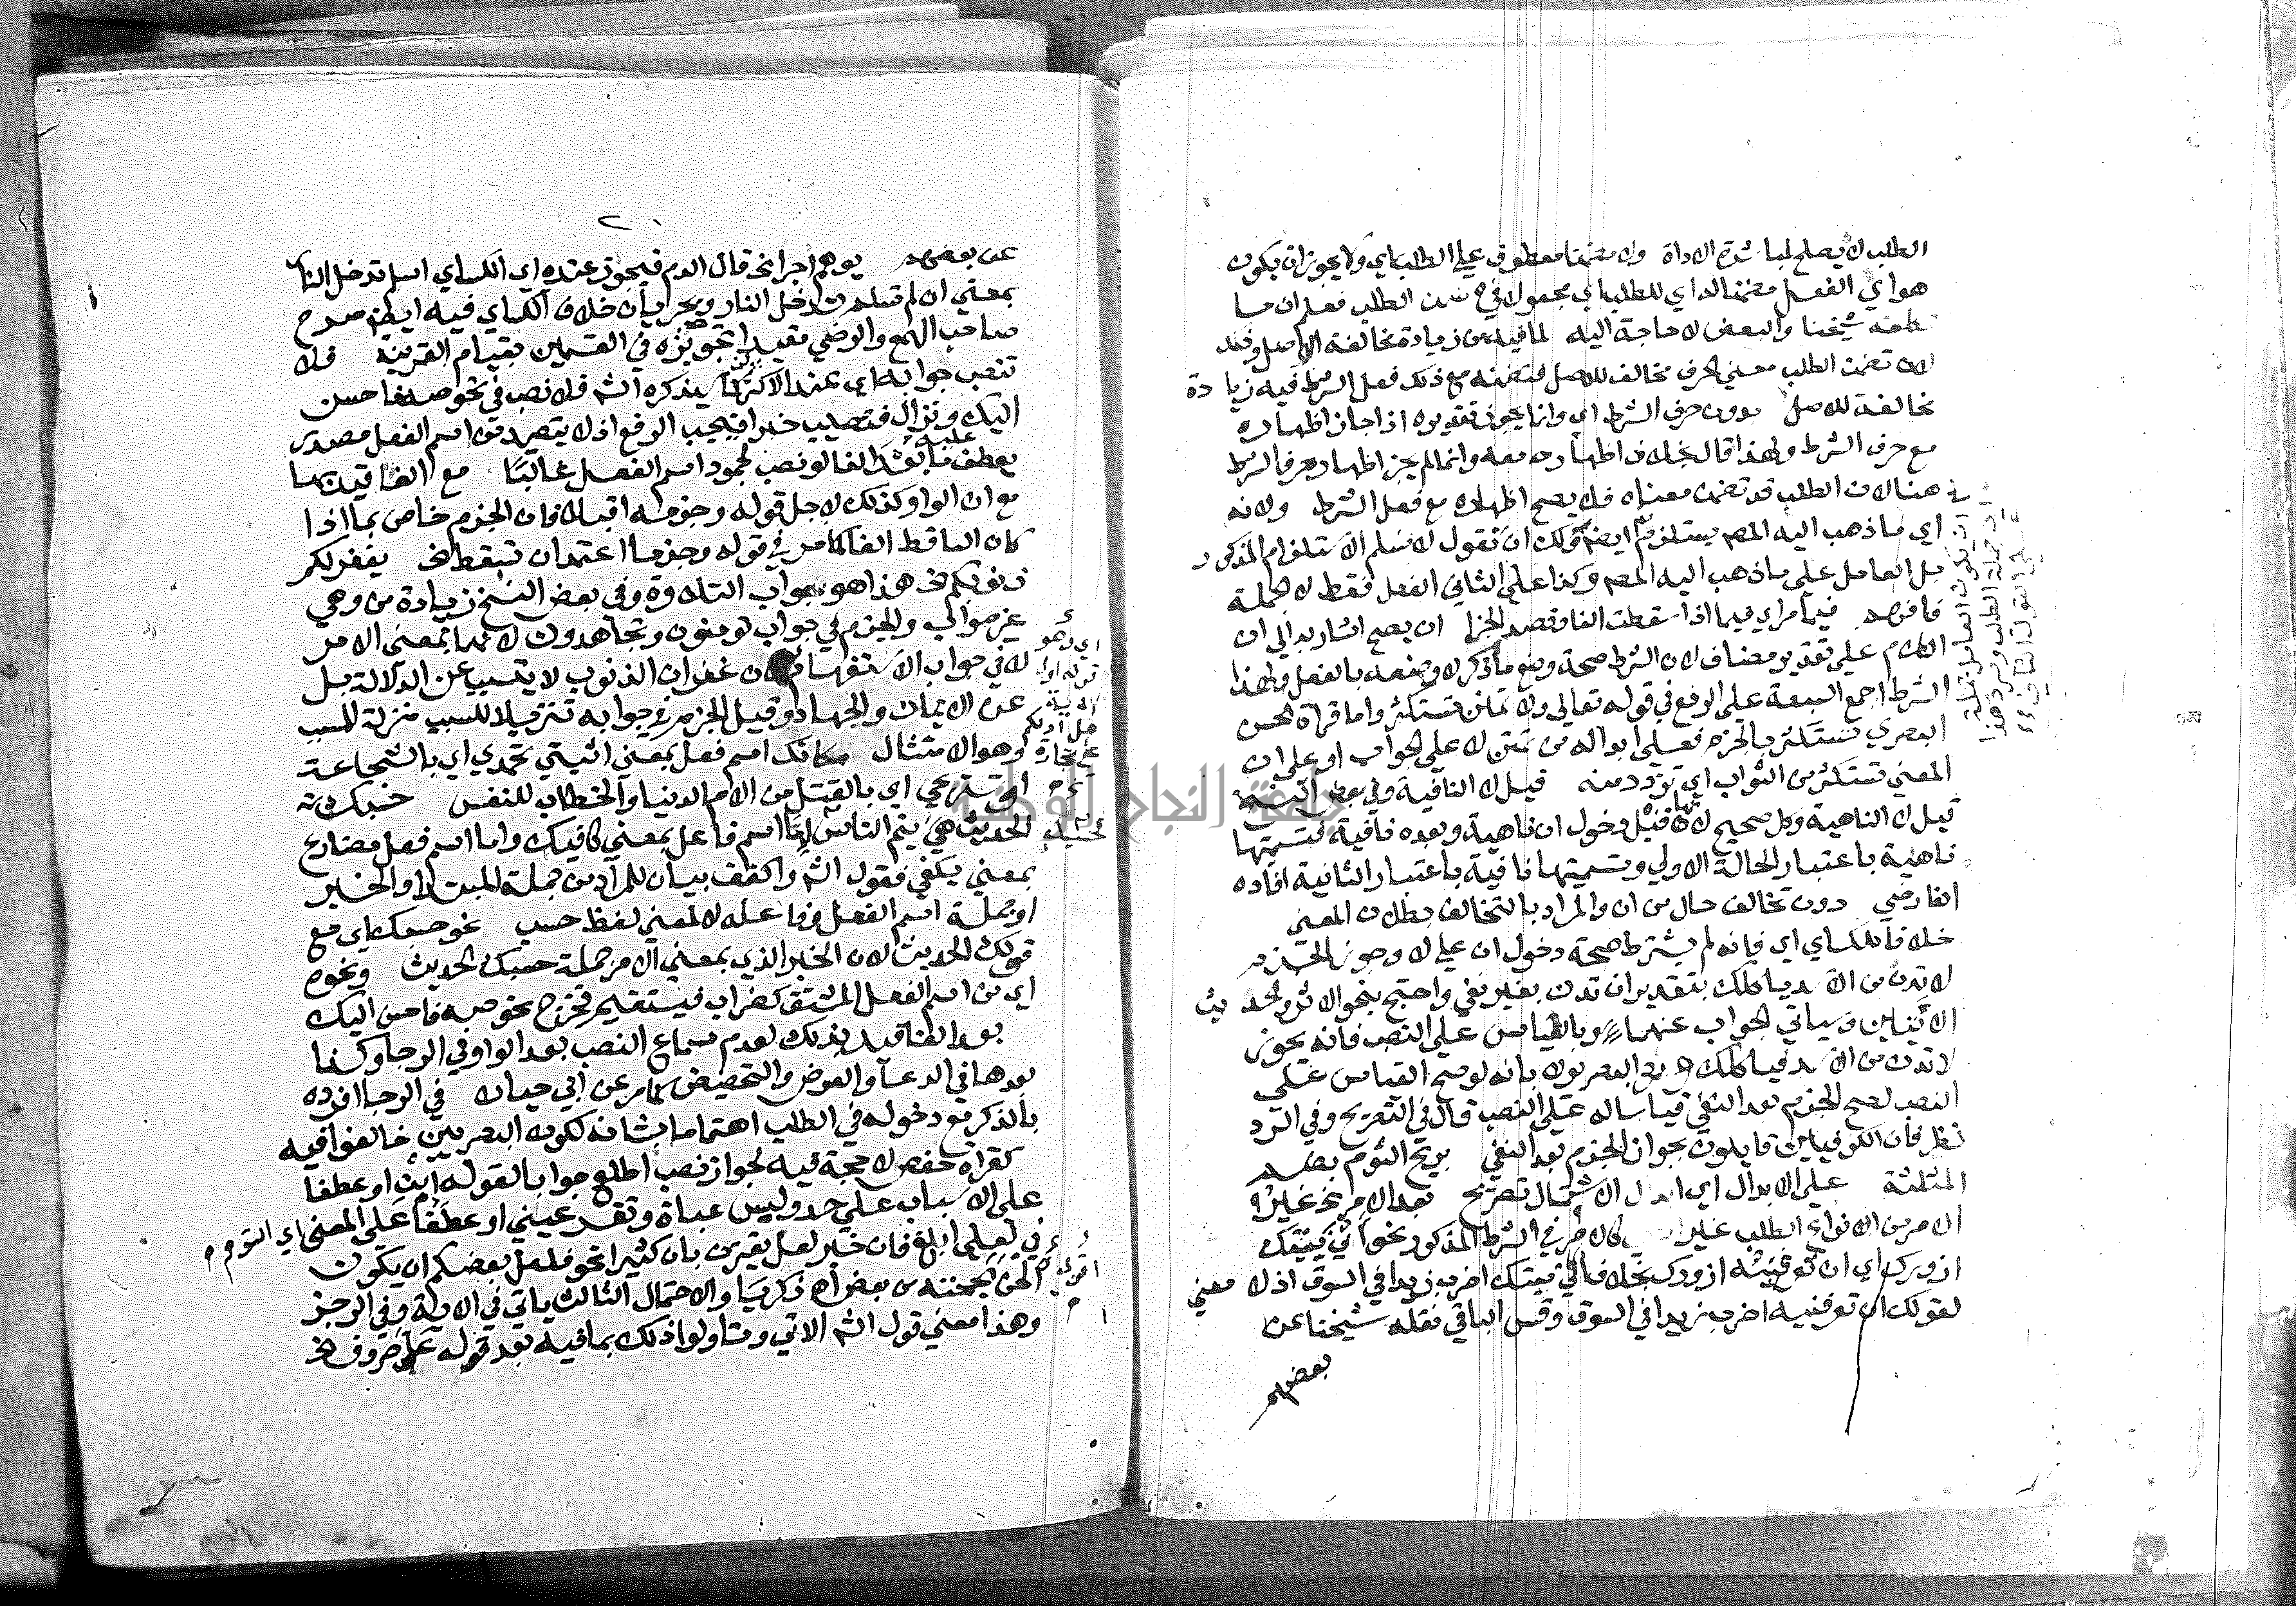 الطلب لا يصلح لمباشرة الاداة ولا مضمنا معطوف علي الطلب اي ولا يجوز ان يكون
هو اي الفعل مضمنا له اي للطلب اي مجعولا في ضمن الطلب فعلم ان ما
شيخنا والبعض لا حاجة اليه لما فيه من زيادة مخالفة الاصل
لان تضمن الطلب معني الحرف مخالف للاصل فتضمنه مع ذلك فعل الشرط فيه زيادة
مخالفة للاصل بدون حرف الشرط اي وانما يجوز تقديره اذا جاز اظهاره
مع حرف الشرط ولهذا قال بخلاف اظهاره معه وانما لم يجز اظهار حرف الشرط
هنا لان الطلب قد تضمن معناه فلا يصح اظهاره مع فعل الشرط ولانه
اي ما ذهب اليه المصم يستلزم ولك ان تقول لا نسلم الاستلزام المذكور
بل العامل علي ما ذهب اليه المصم وكذا علي الثاني الفعل فقط لا الجملة
فافهم فيما مر اي فيما اذا سقطت الفا وقصد الجزا ان يصح اشار به الي ان
الكلام علي تقدير مضاف لان الشرط صحة وضع ما ذكر لا وضعه بالفعل ولهذا
الشرط اجمع السبعة علي الرفع في قوله تعالي ولا تمنن تستكثر واما قراة الحسن
البصري تستكثر بالجزم فعلي ابداله من تمنن لا علي الجواب او علي ان
المعني تستكثر من الثواب اي تزدد منه قبل لا النافية وفي بعض النسخ
قبل لا الناهية وكل صحيح لانها قبل دخول ان ناهية وبعده نافية فتسميتها
ناهية باعتبار الحالة الاولي وتسميتها نافية باعتبار الثانية افاده
الفارضي دون تخالف حال من ان والمراد بالتخالف بطلان المعني
خلافا للكساي اي فانه لم يشترط صحة دخول ان علي لا وجوز الجزم
لا تدن من الاسد ياكلك بتقدير ان تدن بغير نفي واحتج بنحو الاثر والحديث
الاتيين وسياتي الجواب عنهما وبالقياس علي النصب فانه يجوز
لا تدن من الاسد فياكلك ورد البصريون بانه لو صح القياس علي
النصب لصح الجزم بعد النفي قياسا له علي النصب قال في التصريح وفي الرد
نظر فان الكوفيين قايلون بجواز الجزم بعد النفي بريح الثوم
المثلثة علي الابدال اي ابدال الاشتمال تصريح بعد الامر نحو غيره
الامر من الانواع الطلب كالامر في الشرط المذكور نحو
ازورك اي ان تعرفنيه ازورك بخلاف اين بيتك اضرب زيدا في السوق اذ لا معني
لقولك ان تعرفنيه اضرب زيدا في السوق وقس الباقي نقله شيخنا عن
بعضهم
عن بعضهم يوهم اجرا نحو قال الدم فيجوز عنده اي الكساي اسلم تدخل النار
بمعني ان لم تسلم تدخل النار ويجريان خلاف الكساي فيه ايضا صرح
صاحب الهمع والرضي مقيدا تجويزه في القسمين بقيام القرينة فلا
تنصب جوابه اي عند الاكثر لما يذكره الشم فلا نصب في نحو صه فاحسن
اليك ونزال فتصيب خيرا فيجب الرفع اذ لا يتصيد من اسم الفعل مصدر
يعطف عليه ما بعد الفا لو نصب لجمود اسم الفعل غالبا مع الفا قيد بها
مع ان الواو كذلك لاجل قوله وجزمه اقبلا فان الجزم خاص بما اذا
كان الساقط الفا كما مر في قوله وجزما اعتمد ان تسقط الخ يغفر لكم
ذنوبكم الخ هذا هو جواب التلاوة وفي بعض النسخ زيادة من وهي
غير صواب والجزم في جواب تومنون وتجاهدون لانهما بمعني الامر
لا في جواب الاستفهام لان غفران الذنوب لا يتسبب عن الدلالة بل
عن الايمان والجهاد وقيل الجزم في جوابه تنزيلا للسبب منزلة المسبب
وهو الامتثال مكانك اسم فعل بمعني اثبتي تحمدي اي بالشجاعة
او تستريحي اي بالقتل من الام الدنيا والخطاب للنفس حسبك
الحديث ينم الناس اما اسم فاعل بمعني كافيك واما اسم فعل مضارع
بمعني يكفي فقول الشم واكفف بيان للمراد من جملة المبتدا والخبر
او جملة اسم الفعل وفاعله لا لمعني لفظ حسب نحو حسبك اي مع
قولك الحديث لان الخبر الذي بمعني الامر جملة حسبك الحديث ونحوه
اي من اسم الفعل المشتق كضراب فيستقيم فخرج نحو صه فاحسن اليك
بعد الفا قيد بذلك لعدم سماع النصب بعد الواو في الرجا وكذا
بعدها في الدعا والعرض والتحضيض كما مر عن ابي حيان في الرجا افرده
بالذكر مع دخوله في الطلب اهتماما بشانه لكون البصريين خالفوا فيه
كقراة حفص لا حجة فيه لجواز نصب اطلع جوابا لقوله ابن او عطفا
علي الاسباب علي حد وليس عباة وتقر عيني او عطفا علي المعني اي التوهم
لعلي ابلغ فان خبر لعل يقترن بان كثيرا نحو فلعل بعضكم ان يكون
الحن بحجته من بعض اه زكريا والاحتمال الثالث ياتي في الاية وفي الرجز
وهذا معني قول الشم الاتي وتاولوا ذلك بما فيه بعد قوله عل صروف الخ